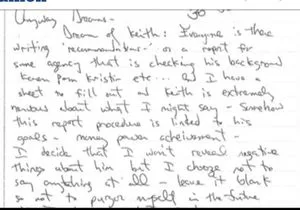 Ongoing Dreams -
Dream of Keith: Everyone is there
writing 'recommendations' or a report for
some agency that is checking his background
Karen Pam Kristin etc... and I have a
sheet to fill out and Keith is extremely
nervous about what I might say - Somehow
this report procedure is linked to his
goals - money power achievement -
I decide that I won't reveal negative
things about him but I choose not to
say anything at all - leave it blank
so not to purger myself in the future